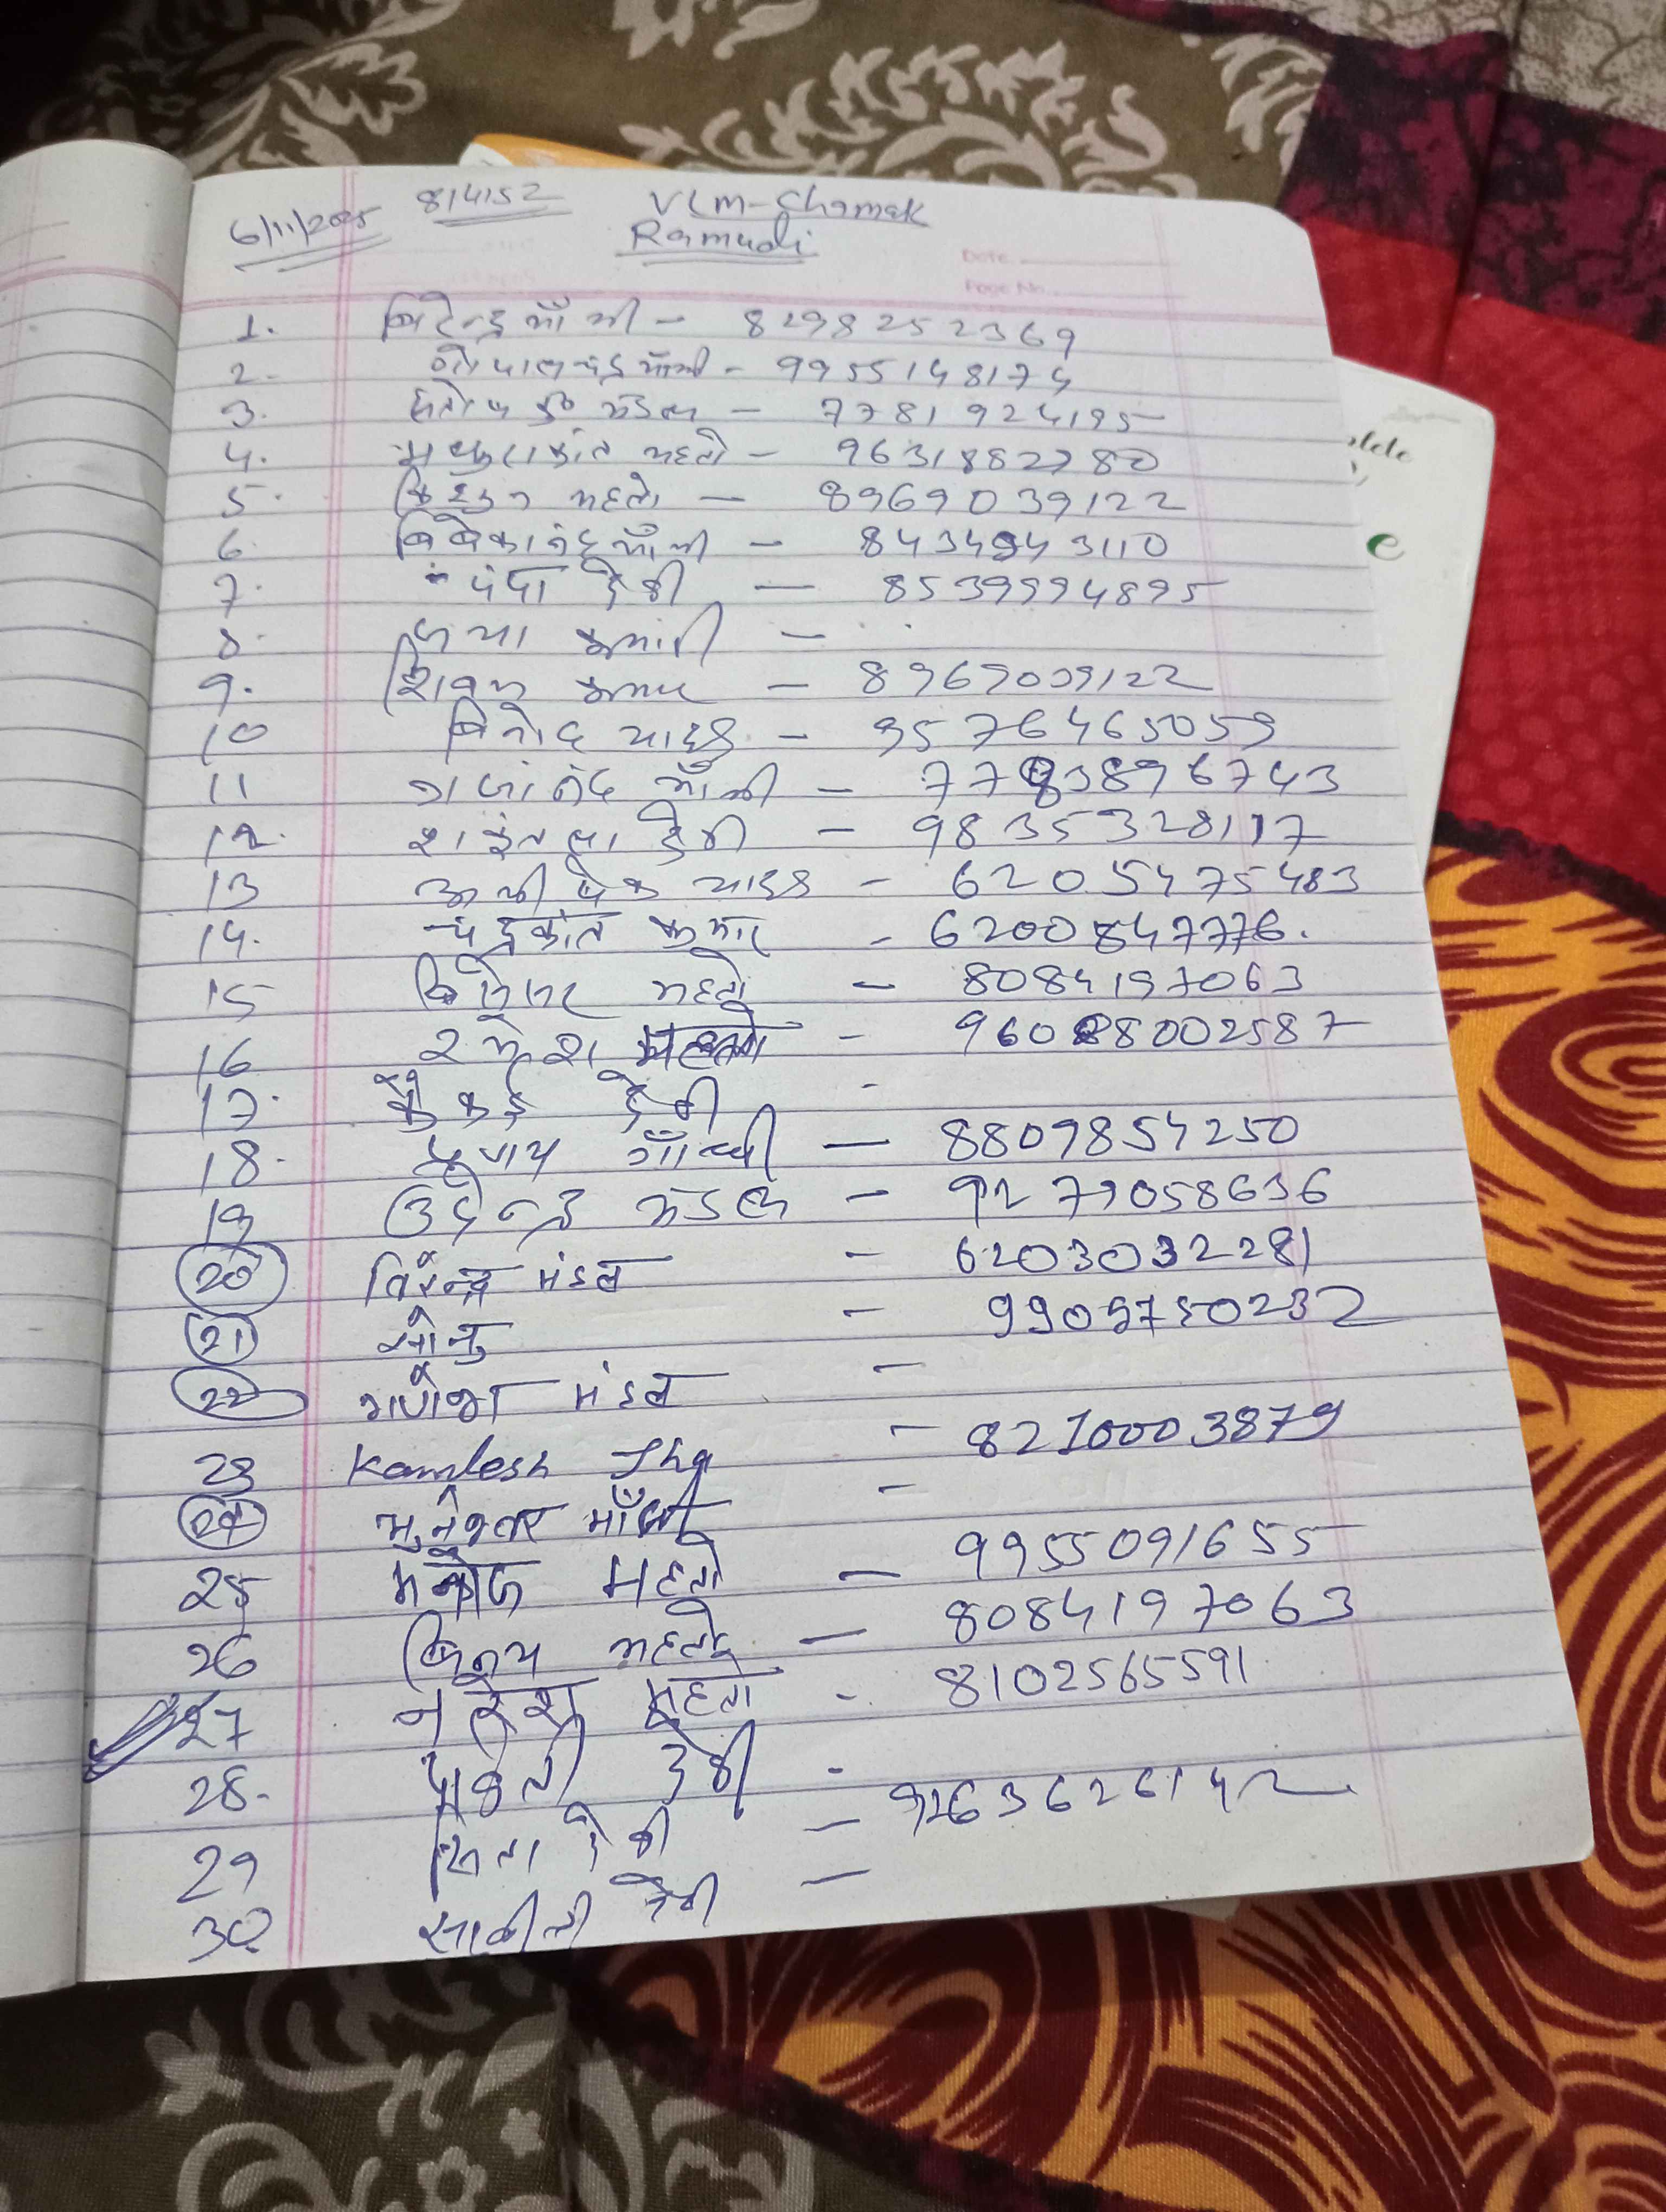 6/11/2025 814152 VLM-Chamak
Ramudi
Date
Page No.
1. बिरेन्द्र माँझी - 8298252369
2. गोपालचंद्र माँझी - 9955148174
3. संतोष कु० मंडल - 7781924195
4. मथुराकांत महतो - 9631882780
5. किशुन महतो - 8969039122
6. विवेकानंद माँझी - 8434943110
7. चंपा देवी - 8539994895
8. जया कुमारी -
9. शिवम कुमार - 8969039122
10 बिनोद यादव - 9576465059
11 गजानंद माँझी - 7738396743
12. शकुंतला देवी - 9835328117
13 अभीषेक यादव - 6205475483
14. चंद्रकांत कुमार - 6200847776.
15 महतो - 8084197063
16 रमेश महतो - 960288002587
17. कैकई देवी -
18. माँझी - 8809854250
19 उपेन्द्र मंडल - 9279058636
20 विरेन्द्र मंडल - 6203032281
21 सोनु - 9909750232
22 मंडल -
23 Kamlesh Jha - 8210003879
24 मुनेश्वर माँझी -
25 मनोज महतो - 9955091655
26 बिनय महतो - 8084197063
27 नरेश महतो - 8102565591
28. पार्वती देवी -
29 देवी - 9263626142
30 सावीत्री देवी -
e